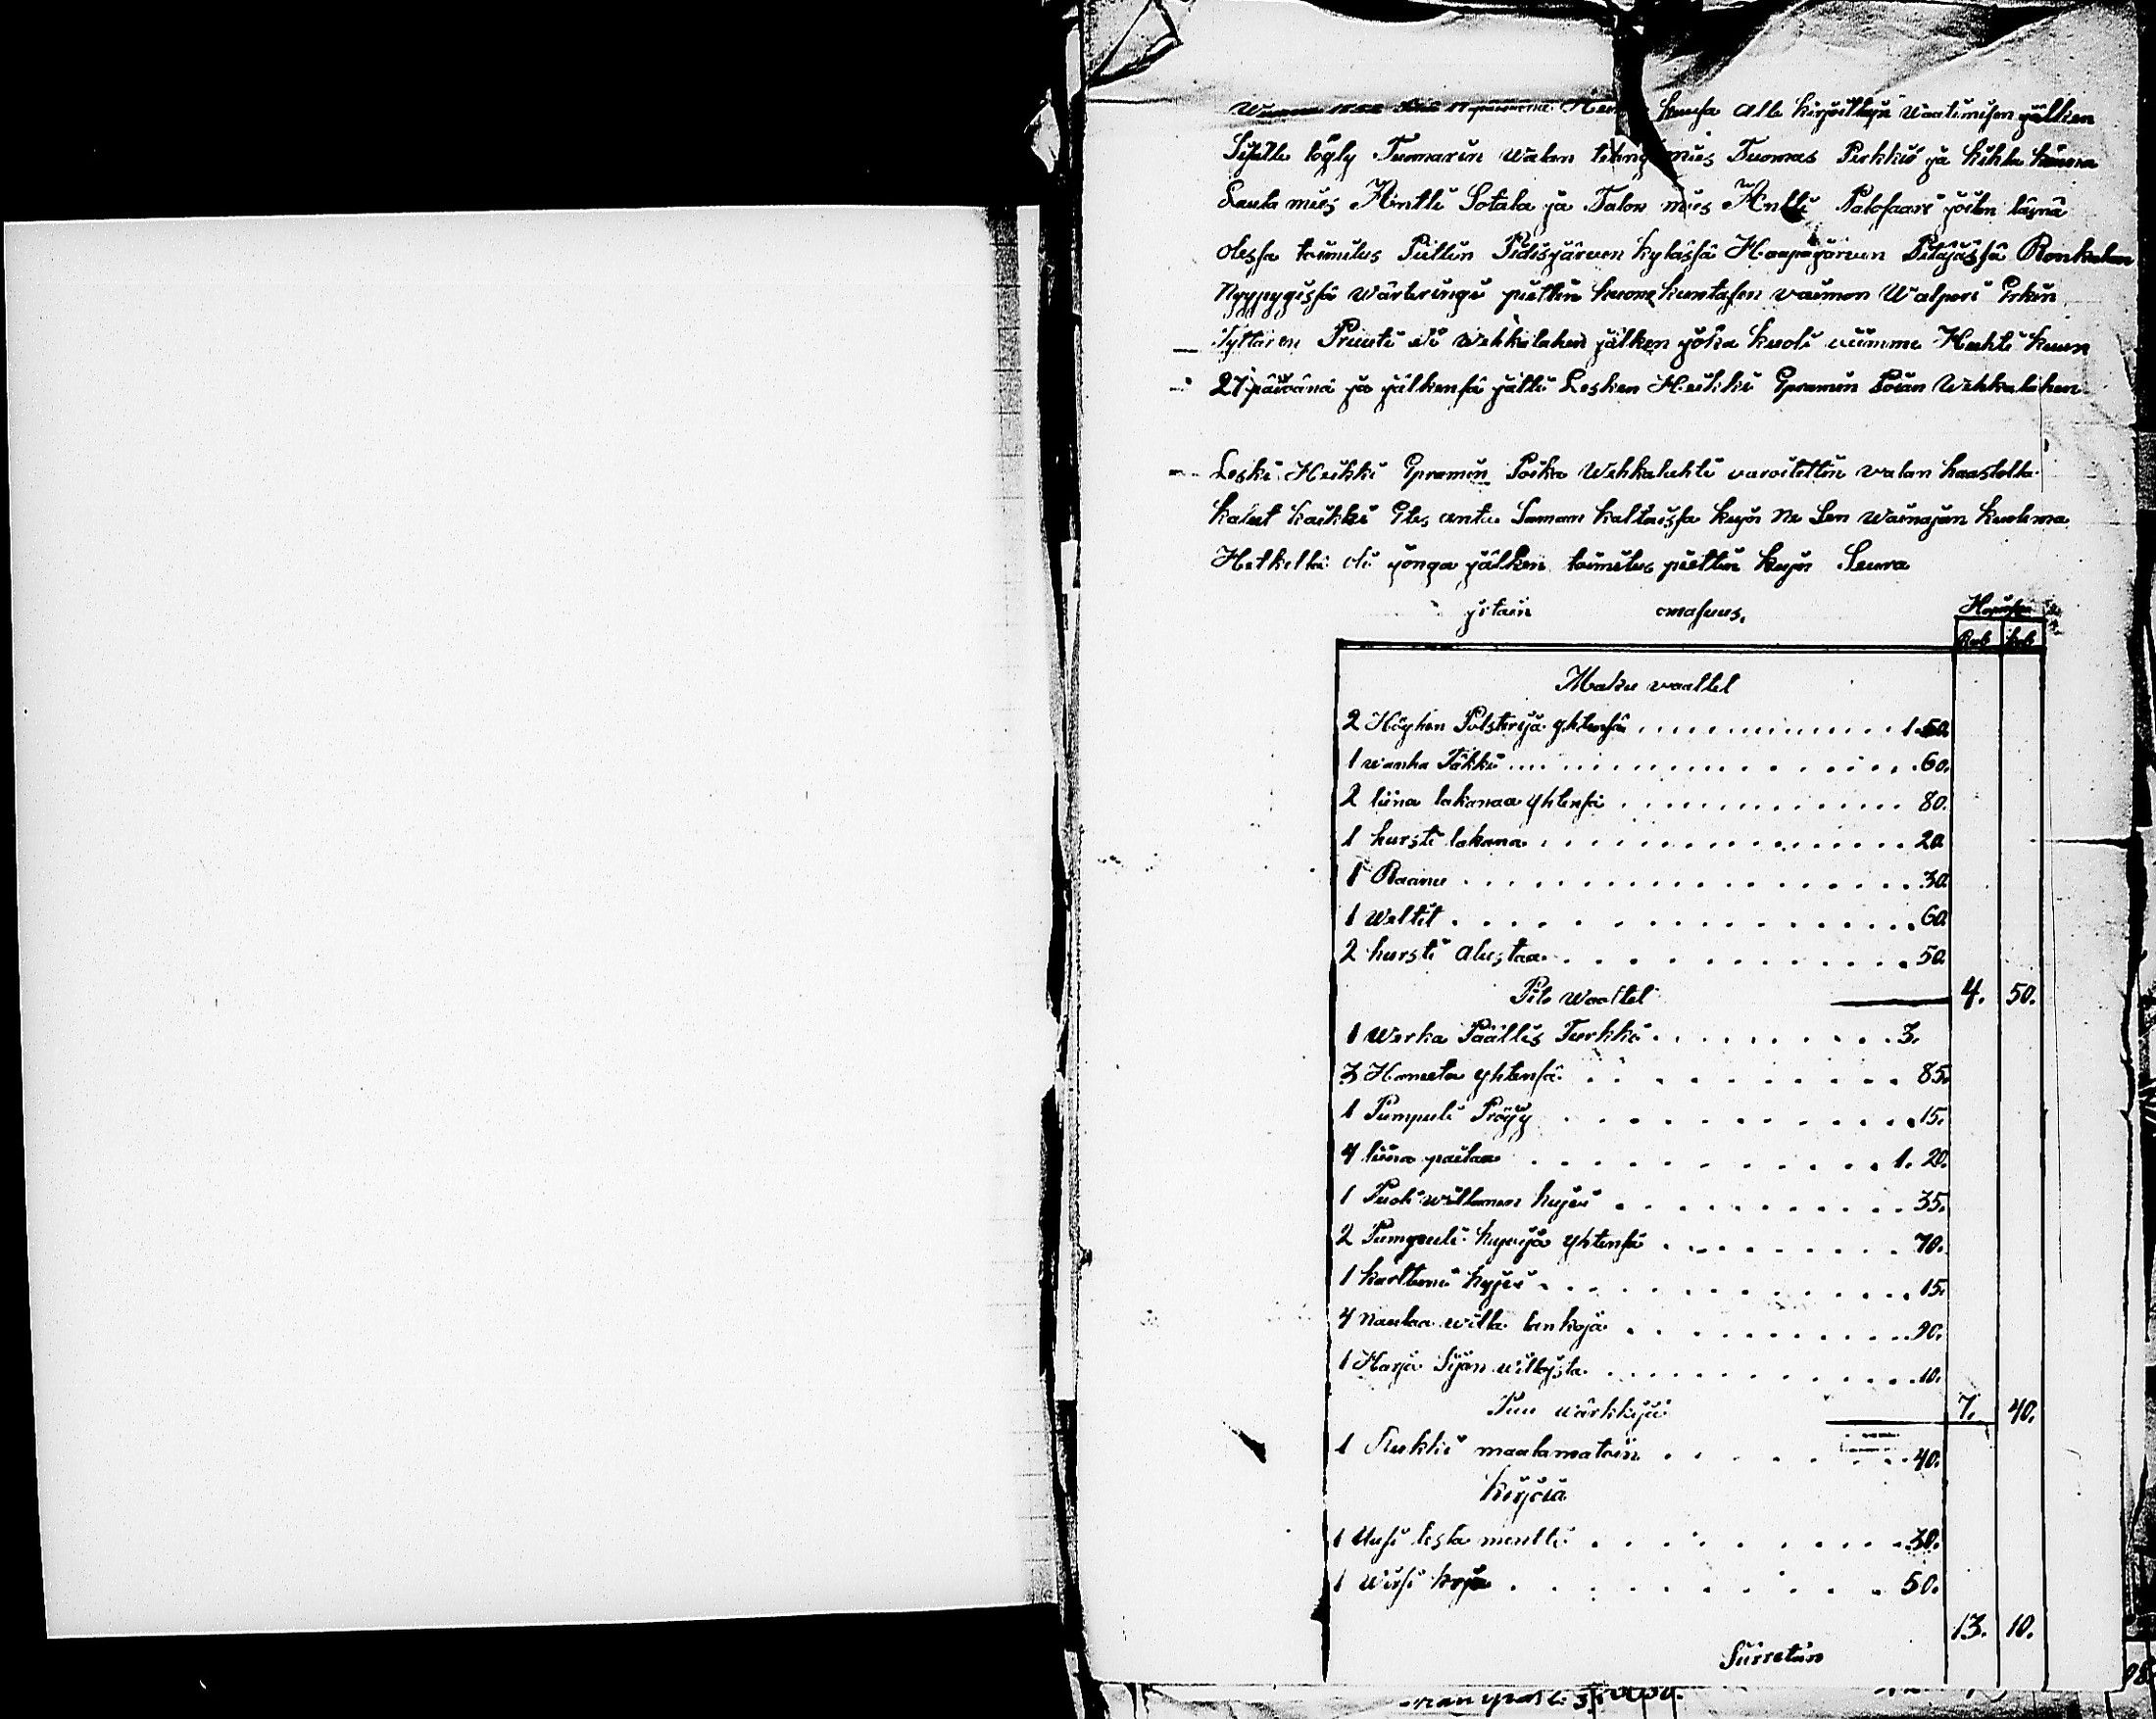 kuusa alle kirjoittajan Waatimisen jälken
Sisälle lögty Tuomarin Walan tehny mies Tuomas Pirkkiö ja kihla
Lauta mies Antti Sotala ja Talon mies Antti Palosaari joiten läsnä
olessa toimitus Pidisjärven kylässä Haapajärven Pitäjässä Ronkalan
Wärteringi piettin huone kuntasen vaimon Walpori Erkin
Tyttären Wehkalahen jälken joka kuoli viimme Huhti kuun
27 päivänä ja jälkensä jätti Lesken Heikki Epramin Poian Wehkalahen
Leski Heikki Epramin Poika Wehkalahti varoitettin valan haastolla
kalut kaikki Ylös antu Saman kaltaissa kujn Ne Sen Wainajan kuolema
Hetkellä oli jonga jälken toimitus piettin kujn Seura
jrtain omasuus.
Hopiassa
Rub kop
Maku vaattet
2 Höyhen Polsterija yhtensä 1.50.
1 wanha Täkki 60.
2 liina lakanaa yhtensä 80.
1 hursti lakana 20
1 Raanu 30.
1 Weltit 60
2 hursti alustaa 50
Pito Waattet 4. 50.
1 Werka Päällis Turkki 3.
3 Hameta yhtensä 85.
1 Pumpuli Pröijy 15.
4 liina paitaa 1. 20.
1 Puoli willanen hujvi 35.
2 Pumpuli hujvija yhtensä 70.
1 karttuni hujvi 15.
4 Naulaa willa lankoja 90.
1 Harja Sijan willojsta 10.
Puu wärkkijä 7. 40.
1 Rukki maalamatoin 40.
kirjoia
1 Uusi testa mentti 30.
1 Wirsi kirja 50.
13. 10.
Siirretän